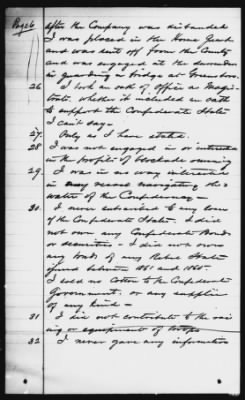 Page 6 after the Company was disbanded
I was placed in the Home Guard
and was sent off from the County
and was engaged at the surrender
in guarding a bridge at Greensboro.
26 I took an oath of office a Magis-
trate, whether it included an oath
to support the Confederate States
I can't say.
27. Only as I have stated.
28 I was not engaged in or interested
in the profits of blockade running
29. I was in no way interested
in any vessel navigating the
water of the Confederacy—
30. I never subscribed to any loan
of the Confederate States. I did
not own any Confederate Bonds
or securities - I did not own
any bonds of any Rebel State
issued between 1861 and 1865.
I sold no Cotton to the Confederate
Government, or any supplies
of any kind—
31 I did not contribute to the rais-
ing or equipment of troops
32 I never gave any information